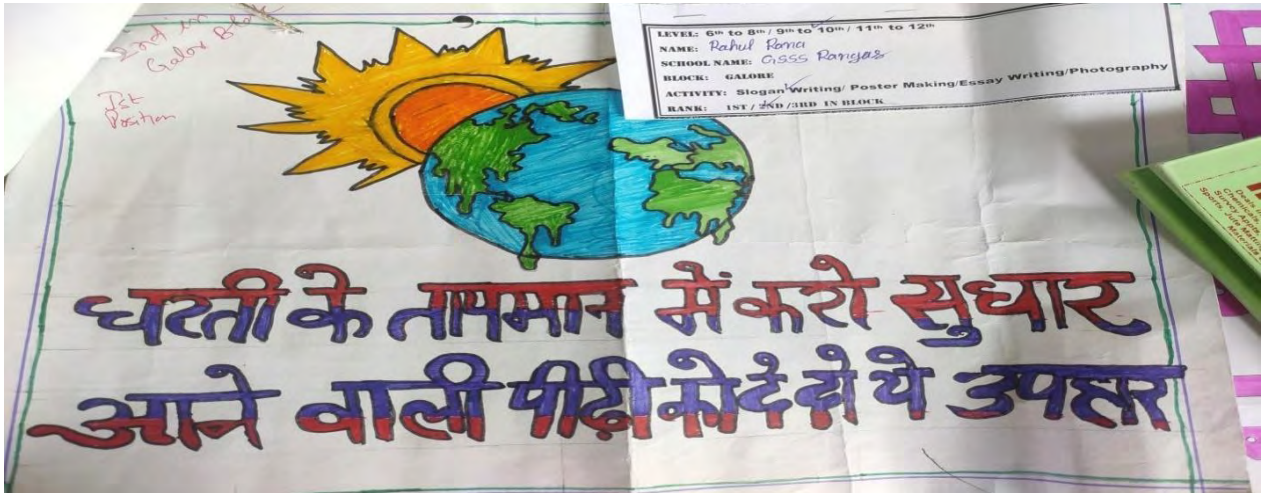 2nd in
Galor Block
Ist
Position
LEVEL: 6th to 8th / 9th to 10th / 11th to 12th
NAME: Rahul Rana
SCHOOL NAME: GSSS Rangas
BLOCK: GALORE
ACTIVITY: Slogan Writing/ Poster Making/Essay Writing/Photography
RANK: 1ST / 2ND /3RD IN BLOCK
धरती के तापमान में करो सुधार
आने वाली पीढ़ी को दे दो ये उपहार
Deals
Chemicals,
Survey
Sports, Jute Matting
Materials